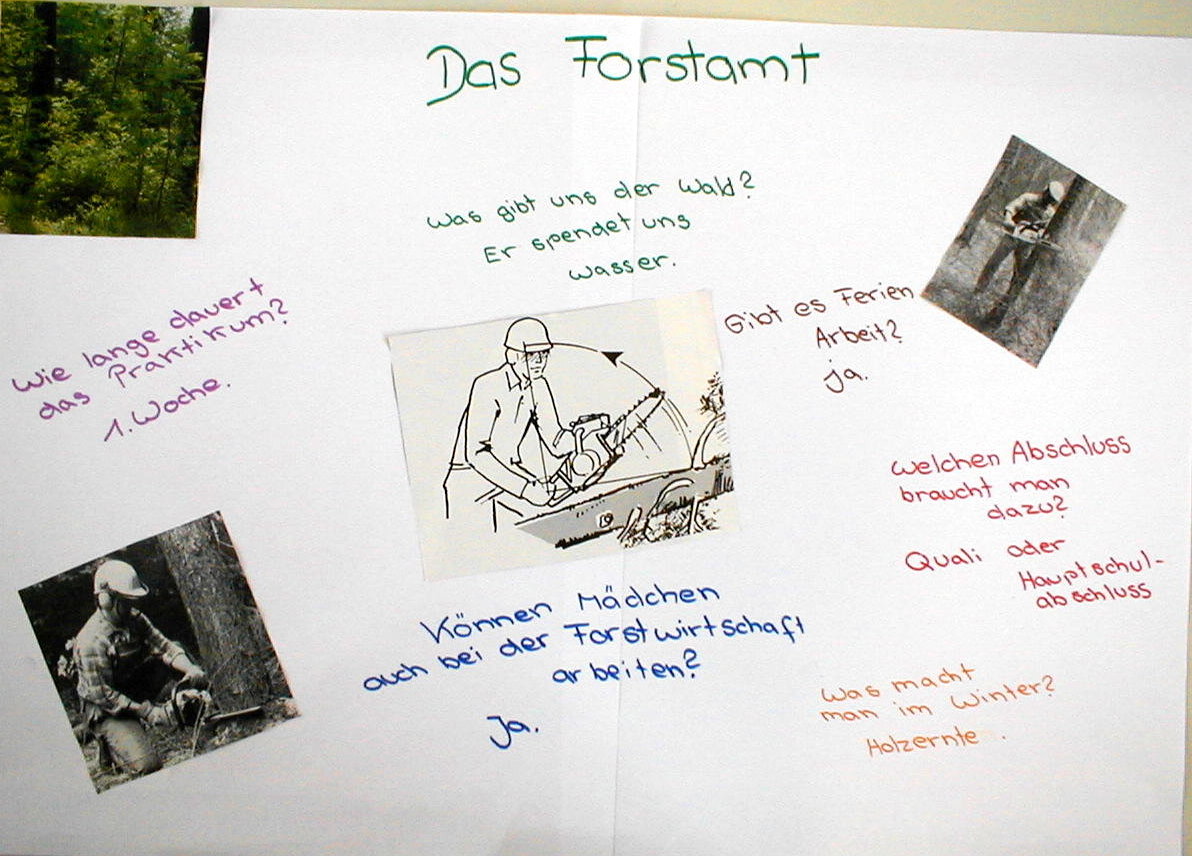 Das Forstamt
Was gibt uns der Wald?
Er spendet uns
Wasser.
Wie lange dauert
das Praktikum?
1. Woche.
Gibt es Ferien
Arbeit?
Ja.
Welchen Abschluss
braucht man
dazu?
Quali oder
Hauptschul-
abschluss
Können Mädchen
auch bei der Forstwirtschaft
arbeiten?
Ja.
Was macht
man im Winter?
Holzernte.